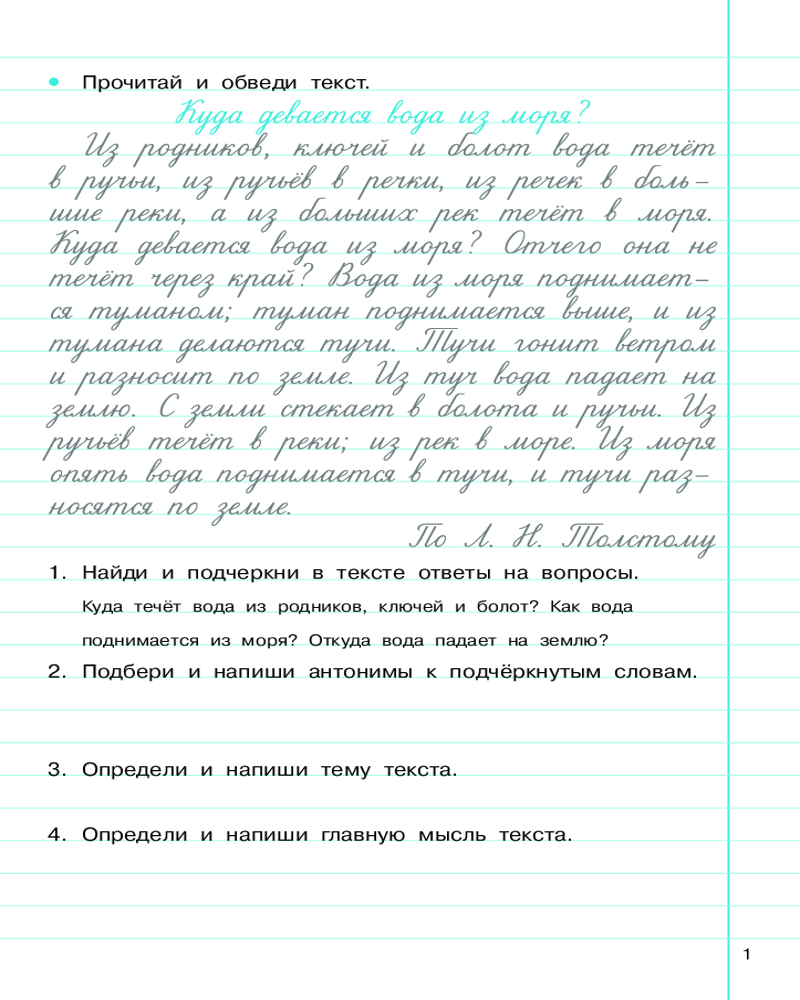 Прочитай и обведи текст.
Куда девается вода из моря?
Из родников, ключей и болот вода течёт
в ручьи, из ручьёв в речки, из речек в боль-
шие реки, а из больших рек течёт в моря.
Куда девается вода из моря? Отчего она не
течёт через край? Вода из моря поднимает-
ся туманом; туман поднимается выше, и из
тумана делаются тучи. Тучи гонит ветром
и разносит по земле. Из туч вода падает на
землю. С земли стекает в болота и ручьи. Из
ручьёв течёт в реки; из рек в море. Из моря
опять вода поднимается в тучи, и тучи раз-
носятся по земле.
По Л. Н. Толстому
1. Найди и подчеркни в тексте ответы на вопросы.
Куда течёт вода из родников, ключей и болот? Как вода
поднимается из моря? Откуда вода падает на землю?
2. Подбери и напиши антонимы к подчёркнутым словам.
3. Определи и напиши тему текста.
4. Определи и напиши главную мысль текста.
1